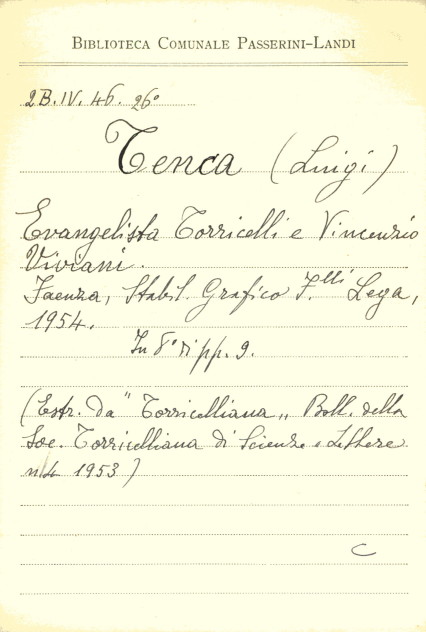 BIBLIOTECA COMUNALE PASSERINI-LANDI
2B.IV.46. 26°
Tenca (Luigi)
Evangelista Torricelli e Vincenzio
Viviani.
Faenza, Stabil. Grafico F.lli Lega,
1954.
In 8° di pp. 9.
(Estr. da "Torricelliana„ Boll. della
Soc. Torricelliana di Scienze e Lettere
n.4 1953)
C